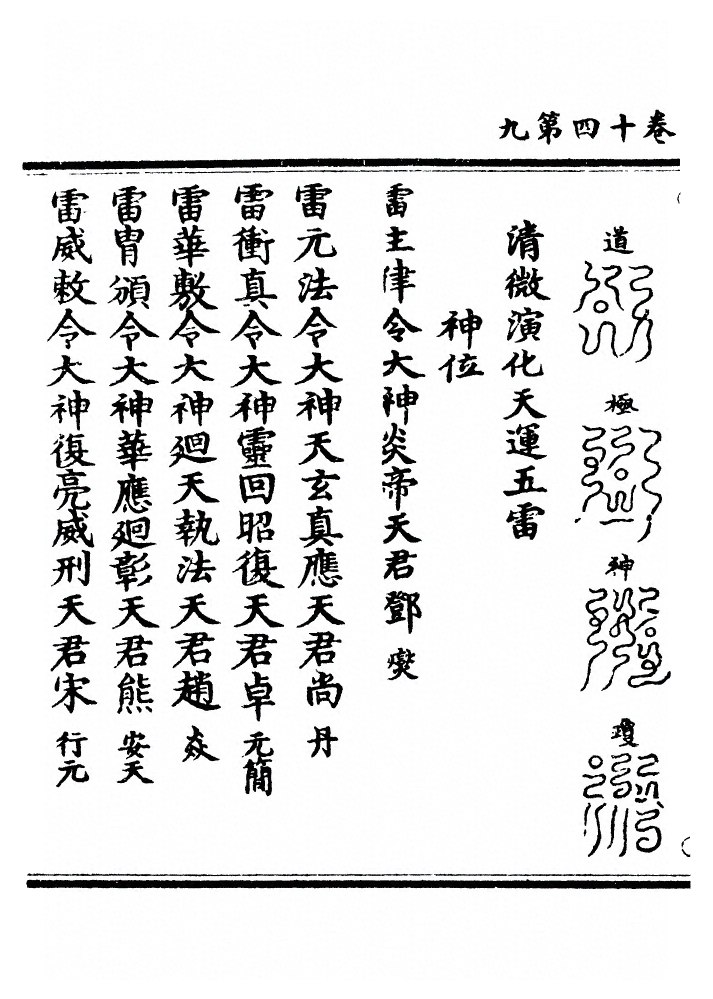 卷十四第九
道
極
神
瓊
清微演化天運五雷
神位
雷主律令大神炎帝天君鄧 燮
雷元法令大神天玄真應天君尚 丹
雷衝真令大神靈回昭復天君卓 元簡
雷華敷令大神廻天執法天君趙 焱
雷冑頒令大神華應廻彰天君熊 安天
雷威敕令大神復亮威刑天君宋 行元